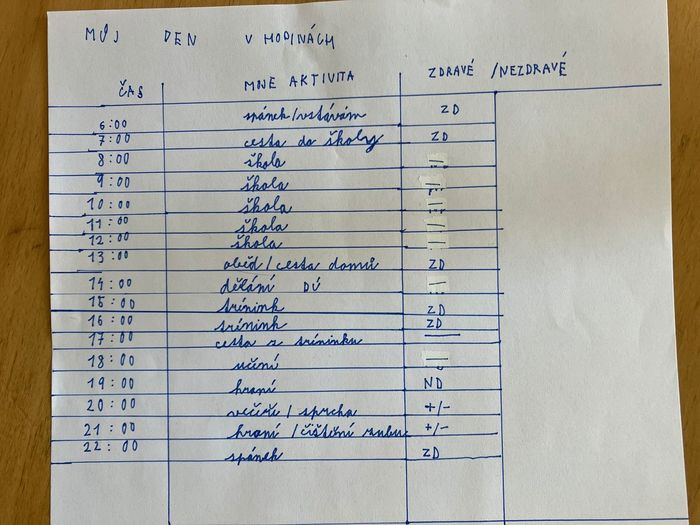 MŮJ DEN V HODINÁCH
ČAS MNE AKTIVITA ZDRAVÉ /NEZDRAVÉ
6:00 spánek/vstávám ZD
7:00 cesta do školy ZD
8:00 škola
9:00 škola
10:00 škola
11:00 škola
12:00 škola
13:00 oběd/cesta domů ZD
14:00 dělání DÚ
15:00 trénink ZD
16:00 trénink ZD
17:00 cesta z tréninku
18:00 učení
19:00 hraní ND
20:00 večeře/sprcha +/-
21:00 hraní/čištění zubu +/-
22:00 spánek ZD